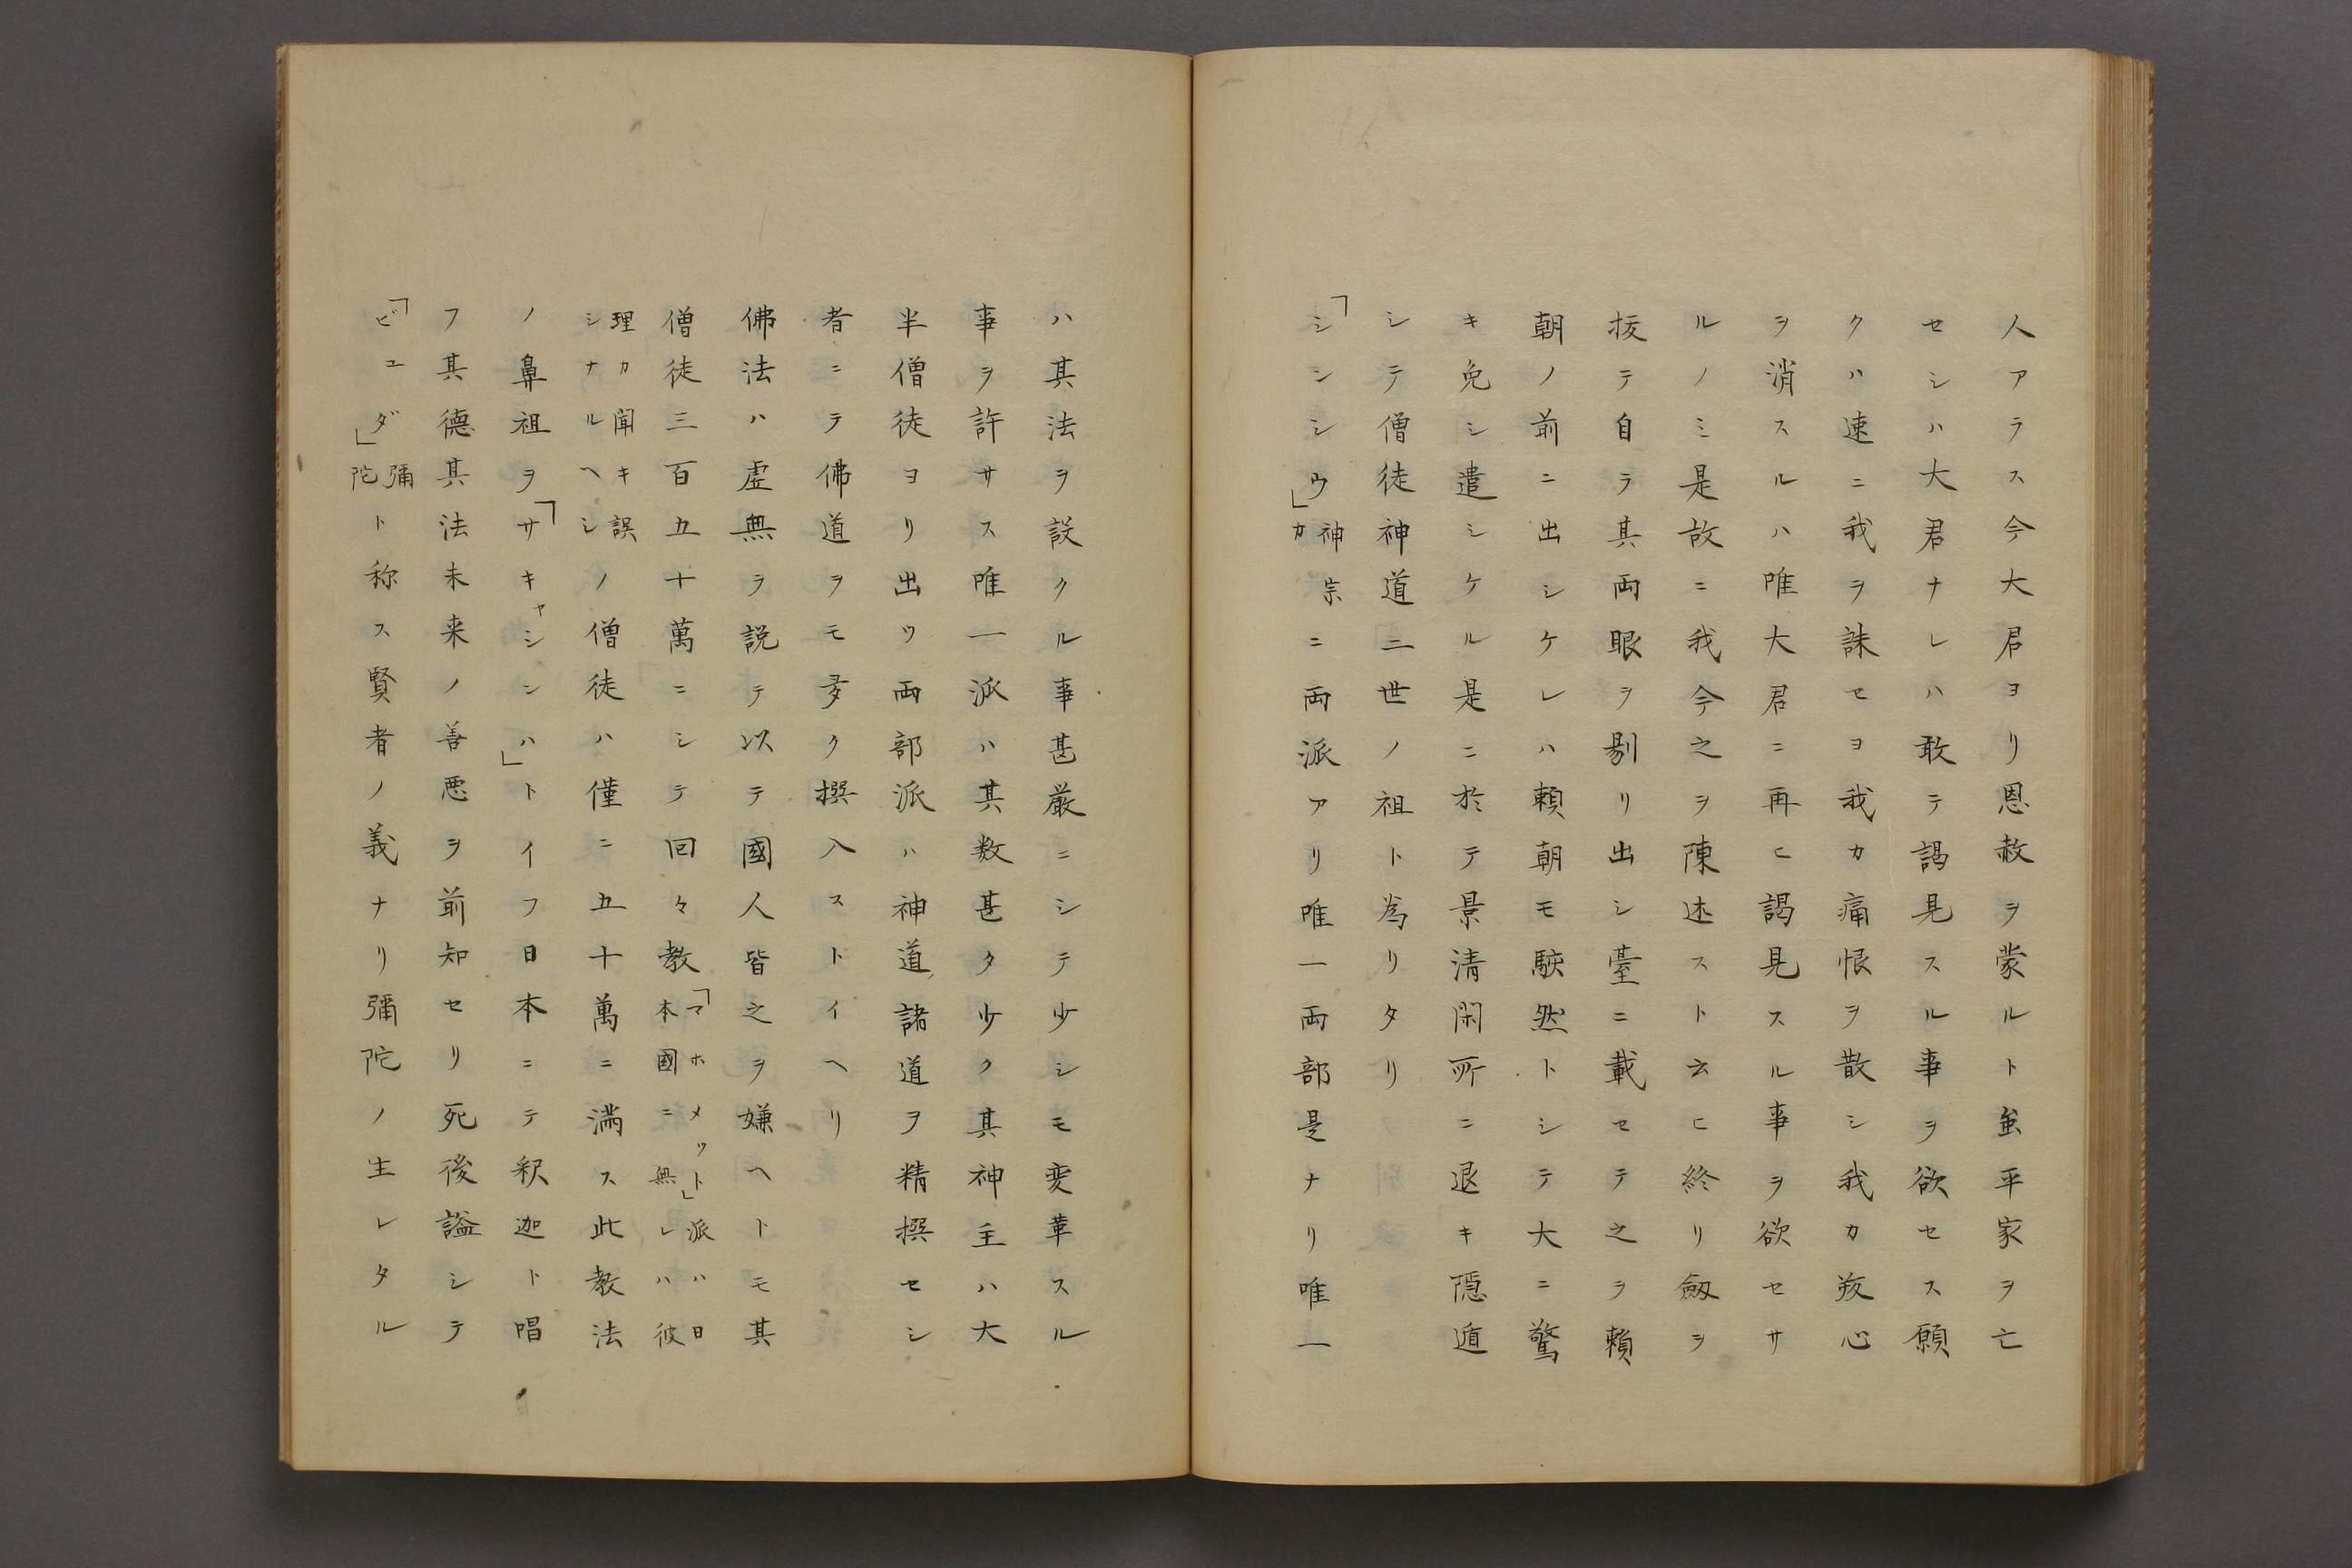 人アラス今大君ヨリ恩赦ヲ蒙ルト虽平家ヲ亡
セシハ大君ナレハ敢テ謁見スル事ヲ欲セス願
クハ速ニ我ヲ誅セヨ我カ痛恨ヲ散シ我カ叛心
ヲ消スルハ唯大君ニ再ヒ謁見スル事ヲ欲セサ
ルノミ是故ニ我今之ヲ陳述スト云ヒ終リ劔ヲ
抜テ自ラ其両眼ヲ剔リ出シ臺ニ載セテ之ヲ頼
朝ノ前ニ出シケレハ頼朝モ駭然トシテ大ニ驚
キ免シ遣シケル是ニ於テ景清閑所ニ退キ隠遁
シテ僧徒神道二世ノ祖ト為リタリ
「シシシウ」神宗カニ両派アリ唯一両部是ナリ唯一
ハ其法ヲ設クル事甚厳ニシテ少シモ変革スル
事ヲ許サス唯一派ハ其数甚タ少ク其神主ハ大
半僧徒ヨリ出ツ両部派ハ神道諸道ヲ精撰セシ
者ニテ佛道ヲモ多ク撰入ストイヘリ
佛法ハ虚無ヲ説テ以テ國人皆之ヲ嫌ヘトモ其
僧徒三百五十萬ニシテ回々教「マホメット」派ハ日本國ニ無レハ彼
理カ聞キ誤シナルヘシノ僧徒ハ僅ニ五十萬ニ満ス此教法
ノ鼻祖ヲ「サキャシンハ」トイフ日本ニテ釈迦ト唱
フ其徳其法未来ノ善悪ヲ前知セリ死後謚シテ
「ビユダ」彌陀ト称ス賢者ノ義ナリ彌陀ノ生レタル